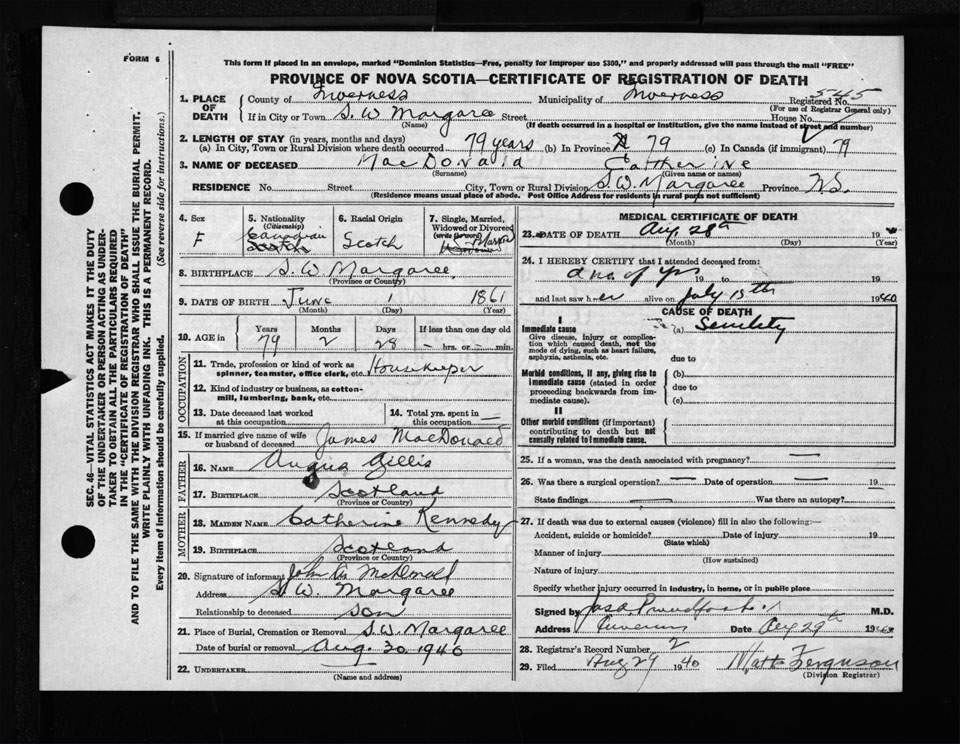 FORM 6
This form if placed in an envelope, marked "Dominion Statistics—Free, penalty for improper use $300," and properly addressed will pass through the mail "FREE"
PROVINCE OF NOVA SCOTIA—CERTIFICATE OF REGISTRATION OF DEATH
1. PLACE OF DEATH County of Inverness Municipality of Inverness Registered No. 545
(For use of Registrar General only)
If in City or Town S. W. Margaree Street House No.
(Name) (If death occurred in a hospital or institution, give the name instead of street and number)
2. LENGTH OF STAY (in years, months and days)
(a) In City, Town or Rural Division where death occurred 79 years (b) In Province 79 (c) In Canada (if immigrant) 79
3. NAME OF DECEASED MacDonald Catherine
(Surname) (Given name or names)
RESIDENCE No. Street City, Town or Rural Division S. W. Margaree Province N.S.
(Residence means usual place of abode. Post Office Address for residents in rural parts not sufficient)
4. Sex F
5. Nationality (Citizenship) Canadian Scotch
6. Racial Origin Scotch
7. Single, Married, Widowed or Divorced (write the word)
8. BIRTHPLACE S. W. Margaree
(Province or Country)
9. DATE OF BIRTH June 1 1861
(Month) (Day) (Year)
10. AGE in Years Months Days If less than one day old
79 2 28 – hrs. or – min.
OCCUPATION
11. Trade, profession or kind of work as spinner, teamster, office clerk, etc. Housekeeper
12. Kind of industry or business, as cotton-mill, lumbering, bank, etc.
13. Date deceased last worked at this occupation
14. Total yrs. spent in this occupation —
15. If married give name of wife or husband of deceased James MacDonald
FATHER
16. NAME Angus Gillis
17. BIRTHPLACE Scotland
(Province or Country)
MOTHER
18. MAIDEN NAME Catherine Kennedy
19. BIRTHPLACE Scotland
(Province or Country)
20. Signature of informant John
Address S. W. Margaree
Relationship to deceased son
21. Place of Burial, Cremation or Removal S. W. Margaree
Date of burial or removal Aug. 30, 1940
22. UNDERTAKER
(Name and address)
MEDICAL CERTIFICATE OF DEATH
23. DATE OF DEATH Aug 28th 19
(Month) (Day) (Year)
24. I HEREBY CERTIFY that I attended deceased from:
19 to 19
and last saw her alive on July 15th 1940
CAUSE OF DEATH
I
Immediate cause (a) Senility
Give disease, injury or complication which caused death, not the mode of dying, such as heart failure, asphyxia, asthenia, etc.
due to
Morbid conditions, if any, giving rise to immediate cause (stated in order proceeding backwards from immediate cause).
(b)
due to
(c)
II
Other morbid conditions (if important) contributing to death but not causally related to immediate cause.
25. If a woman, was the death associated with pregnancy? —
26. Was there a surgical operation? — Date of operation — 19
State findings — Was there an autopsy?
27. If death was due to external causes (violence) fill in also the following:—
Accident, suicide or homicide? Date of injury 19
(State which)
Manner of injury
(How sustained)
Nature of injury
Specify whether injury occurred in industry, in home, or in public place
Signed by M.D.
Address Inverness Date Aug 29th 1940
28. Registrar's Record Number 2
29. Filed Aug 29 1940 Matt Ferguson
(Division Registrar)
SEC. 46—VITAL STATISTICS ACT MAKES IT THE DUTY
OF THE UNDERTAKER OR PERSON ACTING AS UNDER-
TAKER TO OBTAIN ALL THE PARTICULARS REQUIRED
IN THE "CERTIFICATE OF REGISTRATION OF DEATH"
AND TO FILE THE SAME WITH THE DIVISION REGISTRAR WHO SHALL ISSUE THE BURIAL PERMIT.
WRITE PLAINLY WITH UNFADING INK. THIS IS A PERMANENT RECORD.
Every item of information should be carefully supplied. (See reverse side for instructions.)